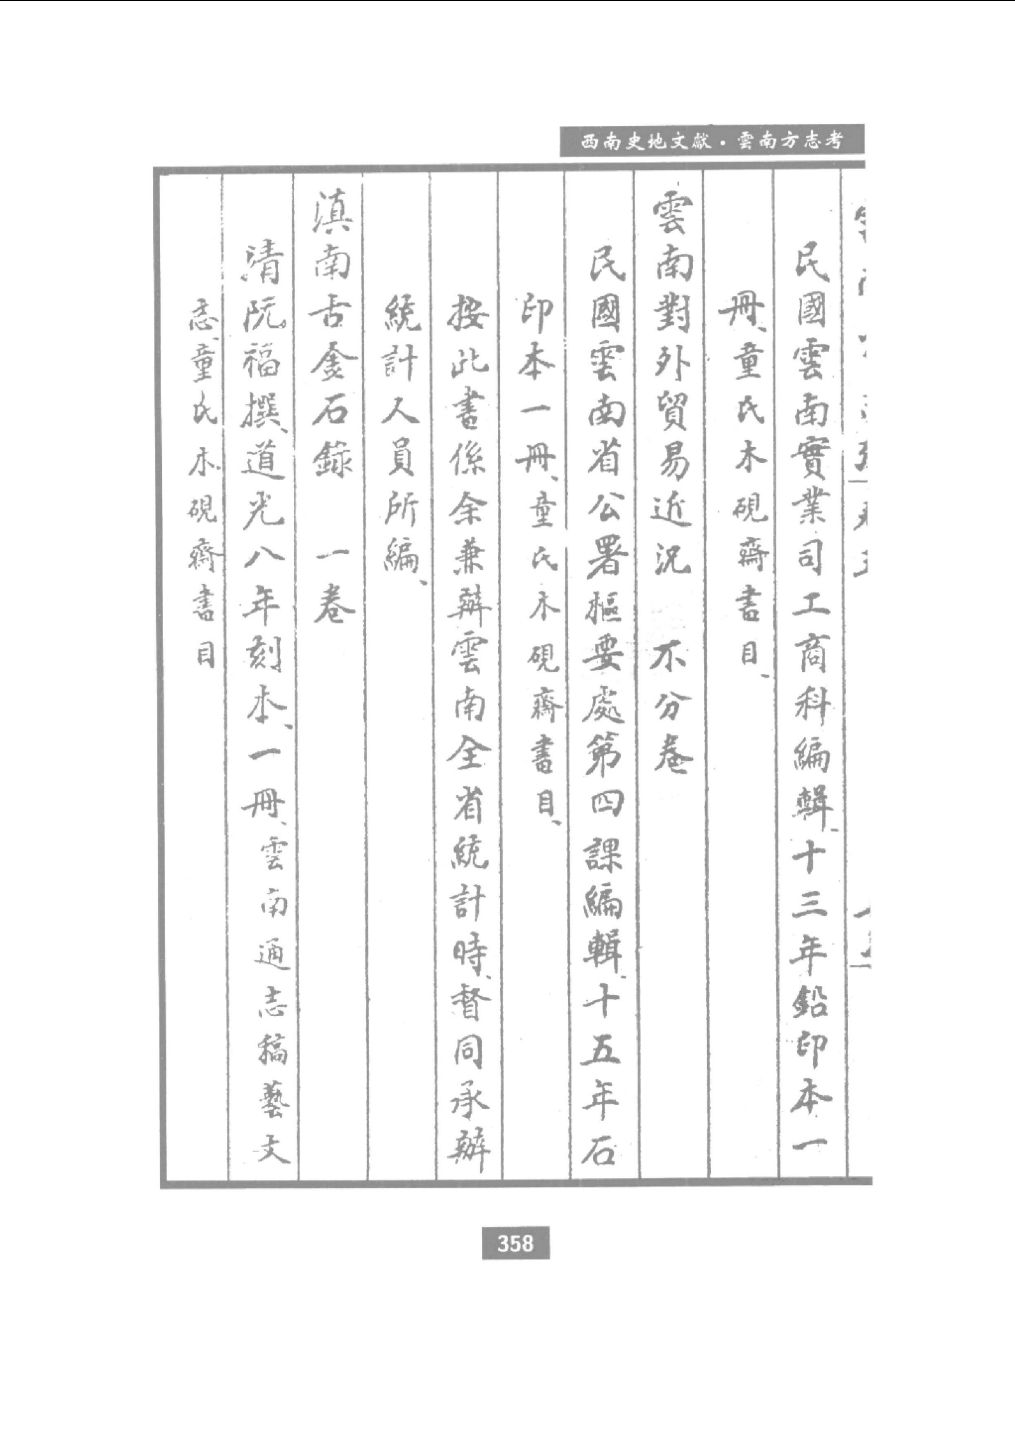 西南史地文獻·雲南方志考
民國雲南實業司工商科編輯、十三年鉛印本一
冊、童氏木硯齋書目、
雲南對外貿易近況　不分卷
民國雲南省公署樞要處第四課編輯、十五年石
印本一冊、童氏木硯齋書目、
按此書係余兼辦雲南全省統計時、督同承辦
統計人員所編、
滇南古金石錄　一卷
清阮福撰、道光八年刻本、一冊、雲南通志稿藝文
志、童氏木硯齋書目
358